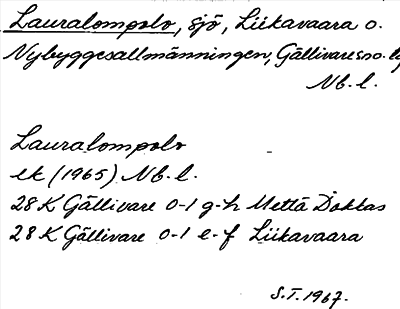 Lauralompolo, sjö, Liikavaara o.
Nybyggesallmänningen, Gällivare sn.
Nb. l.
Lauralompolo
ek (1965) Nb. l.
28 K Gällivare 0-1 g-h Mettä Dokkas
28 K Gällivare 0-1 e-f Liikavaara
S.T. 1967.